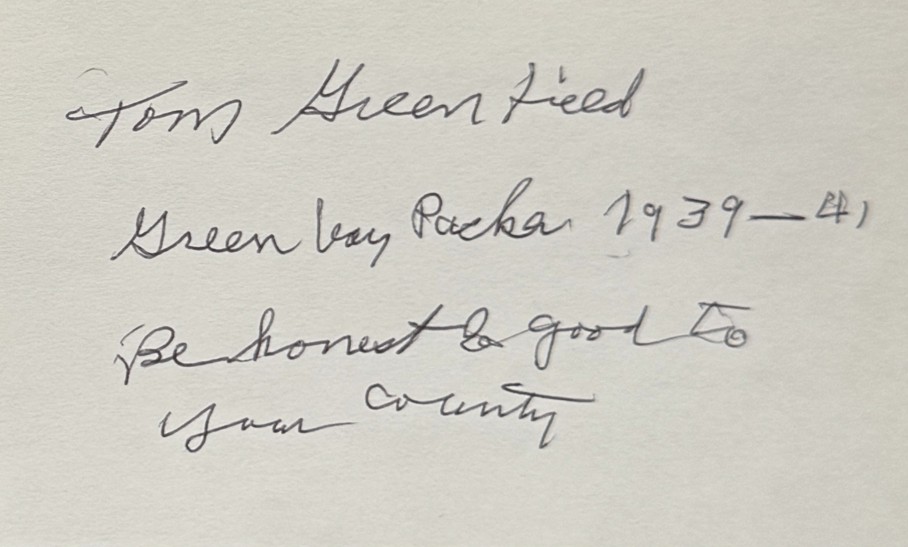 Tom Greenfield
Green bay Packer 1939-41
Be honest & good to
your county